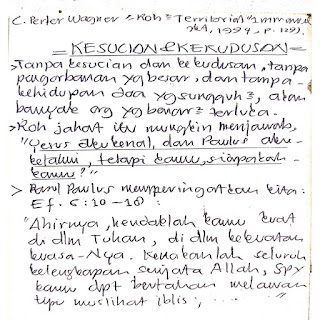 C. Peter Wagner "Roh² Territorial" Immanuel, 1994, p. 129).
= KESUCIAN & KEKUDUSAN =
> Tanpa kesucian dan kekudusan, tanpa
pengorbanan yg besar, dan tanpa
kehidupan doa yg sungguh², akan
banyak org yg benar² terluka.
> Roh jahat itu mungkin menjawab,
"Yesus aku kenal, dan Paulus aku
ketahui, tetapi kamu, siapakah
kamu?"
> Rasul Paulus memperingatkan kita:
Ef. 6:10-18:
"Ahirnya, hendaklah kamu kuat
di dlm Tuhan, di dlm kekuatan
kuasa-Nya. Kenakanlah seluruh
kelengkapan senjata Allah, spy
kamu dpt bertahan melawan
tipu muslihat iblis;